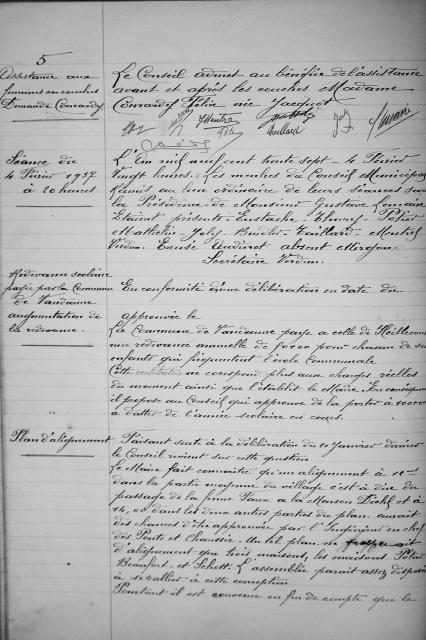 5
Assistance aux
femmes en couches
Demande Conrardy
Le Conseil admet au bénéfice de l'assistance
avant et après les couches Madame
Conrardy Félix née Jacquot
Séance du
4 Février 1937
à 20 heures.
L'Em mil neuf cent trente sept - 4 Février
Vingt heures. Les membres du Conseil Municipal
Réunis au lieu ordinaire de leurs séances sous
la Présidence de Monsieur Gustave
Etaient présents. Eustache. Thierry.
Mathelin. Joly. Vaillard.
Verdun. Excusé Audinot absent
Secrétaire Verdun.
Redevance scolaire
payée par la Commune
de Vandœuvre
augmentation de
la redevance.
En conformité d'une délibération en date du
approuvée le
La Commune de Vandœuvre paye à celle de Heillecourt
une redevance annuelle de pour chacun de ses
enfants qui fréquentent l'école Communale
Cette ne correspond plus aux charges réelles
du moment ainsi que l'établit le Maire. En conséquence
il propose au Conseil qui approuve de la porter à
à dater de l'année scolaire en cours.
Plan d'alignement
Faisant suite à la délibération du Janvier dernier
le Conseil revient sur cette question
Le Maire fait connaître qu'un alignement à
dans la partie moyenne du village c'est à dire du
passage de la ferme à la Maison et à
14,00 dans les deux autres parties du plan. aurait
des chances d'être approuvée par l'Ingénieur en chef
des Ponts et Chaussée. Un tel plan ne
d'alignement que trois maisons, les maisons
Beaufort et Schott. L'assemblée parait assez disposée
à se rallier à cette conception
Pourtant il est convenu en fin de compte que le